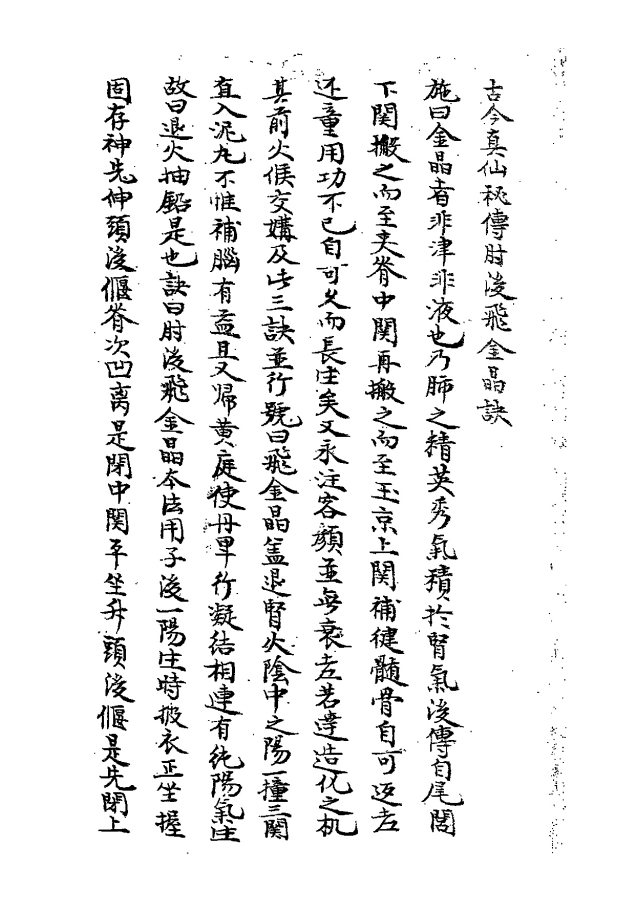 古今真仙秘傳肘後飛金晶訣
施曰金晶者非津非液也乃肺之精英秀氣積於腎氣後傳自尾閭
下関搬之而至夹脊中関再搬之而至玉京上関補健髓骨自可返老
还童用功不已自可久而長生矣又永注容顔並無衰老若達造化之机
其前火候交媾及此三訣並行號曰飛金晶盖退腎火陰中之陽一撞三関
直入泥丸不惟補腦有益且又帰黄庭使丹早行凝结相連有純陽氣生
故曰退火抽鈆是也訣曰肘後飛金晶本法用子後一陽生時披衣正坐握
固存神先伸頭後偃脊次凹离是閉中関平坐升頭後偃是先閉上